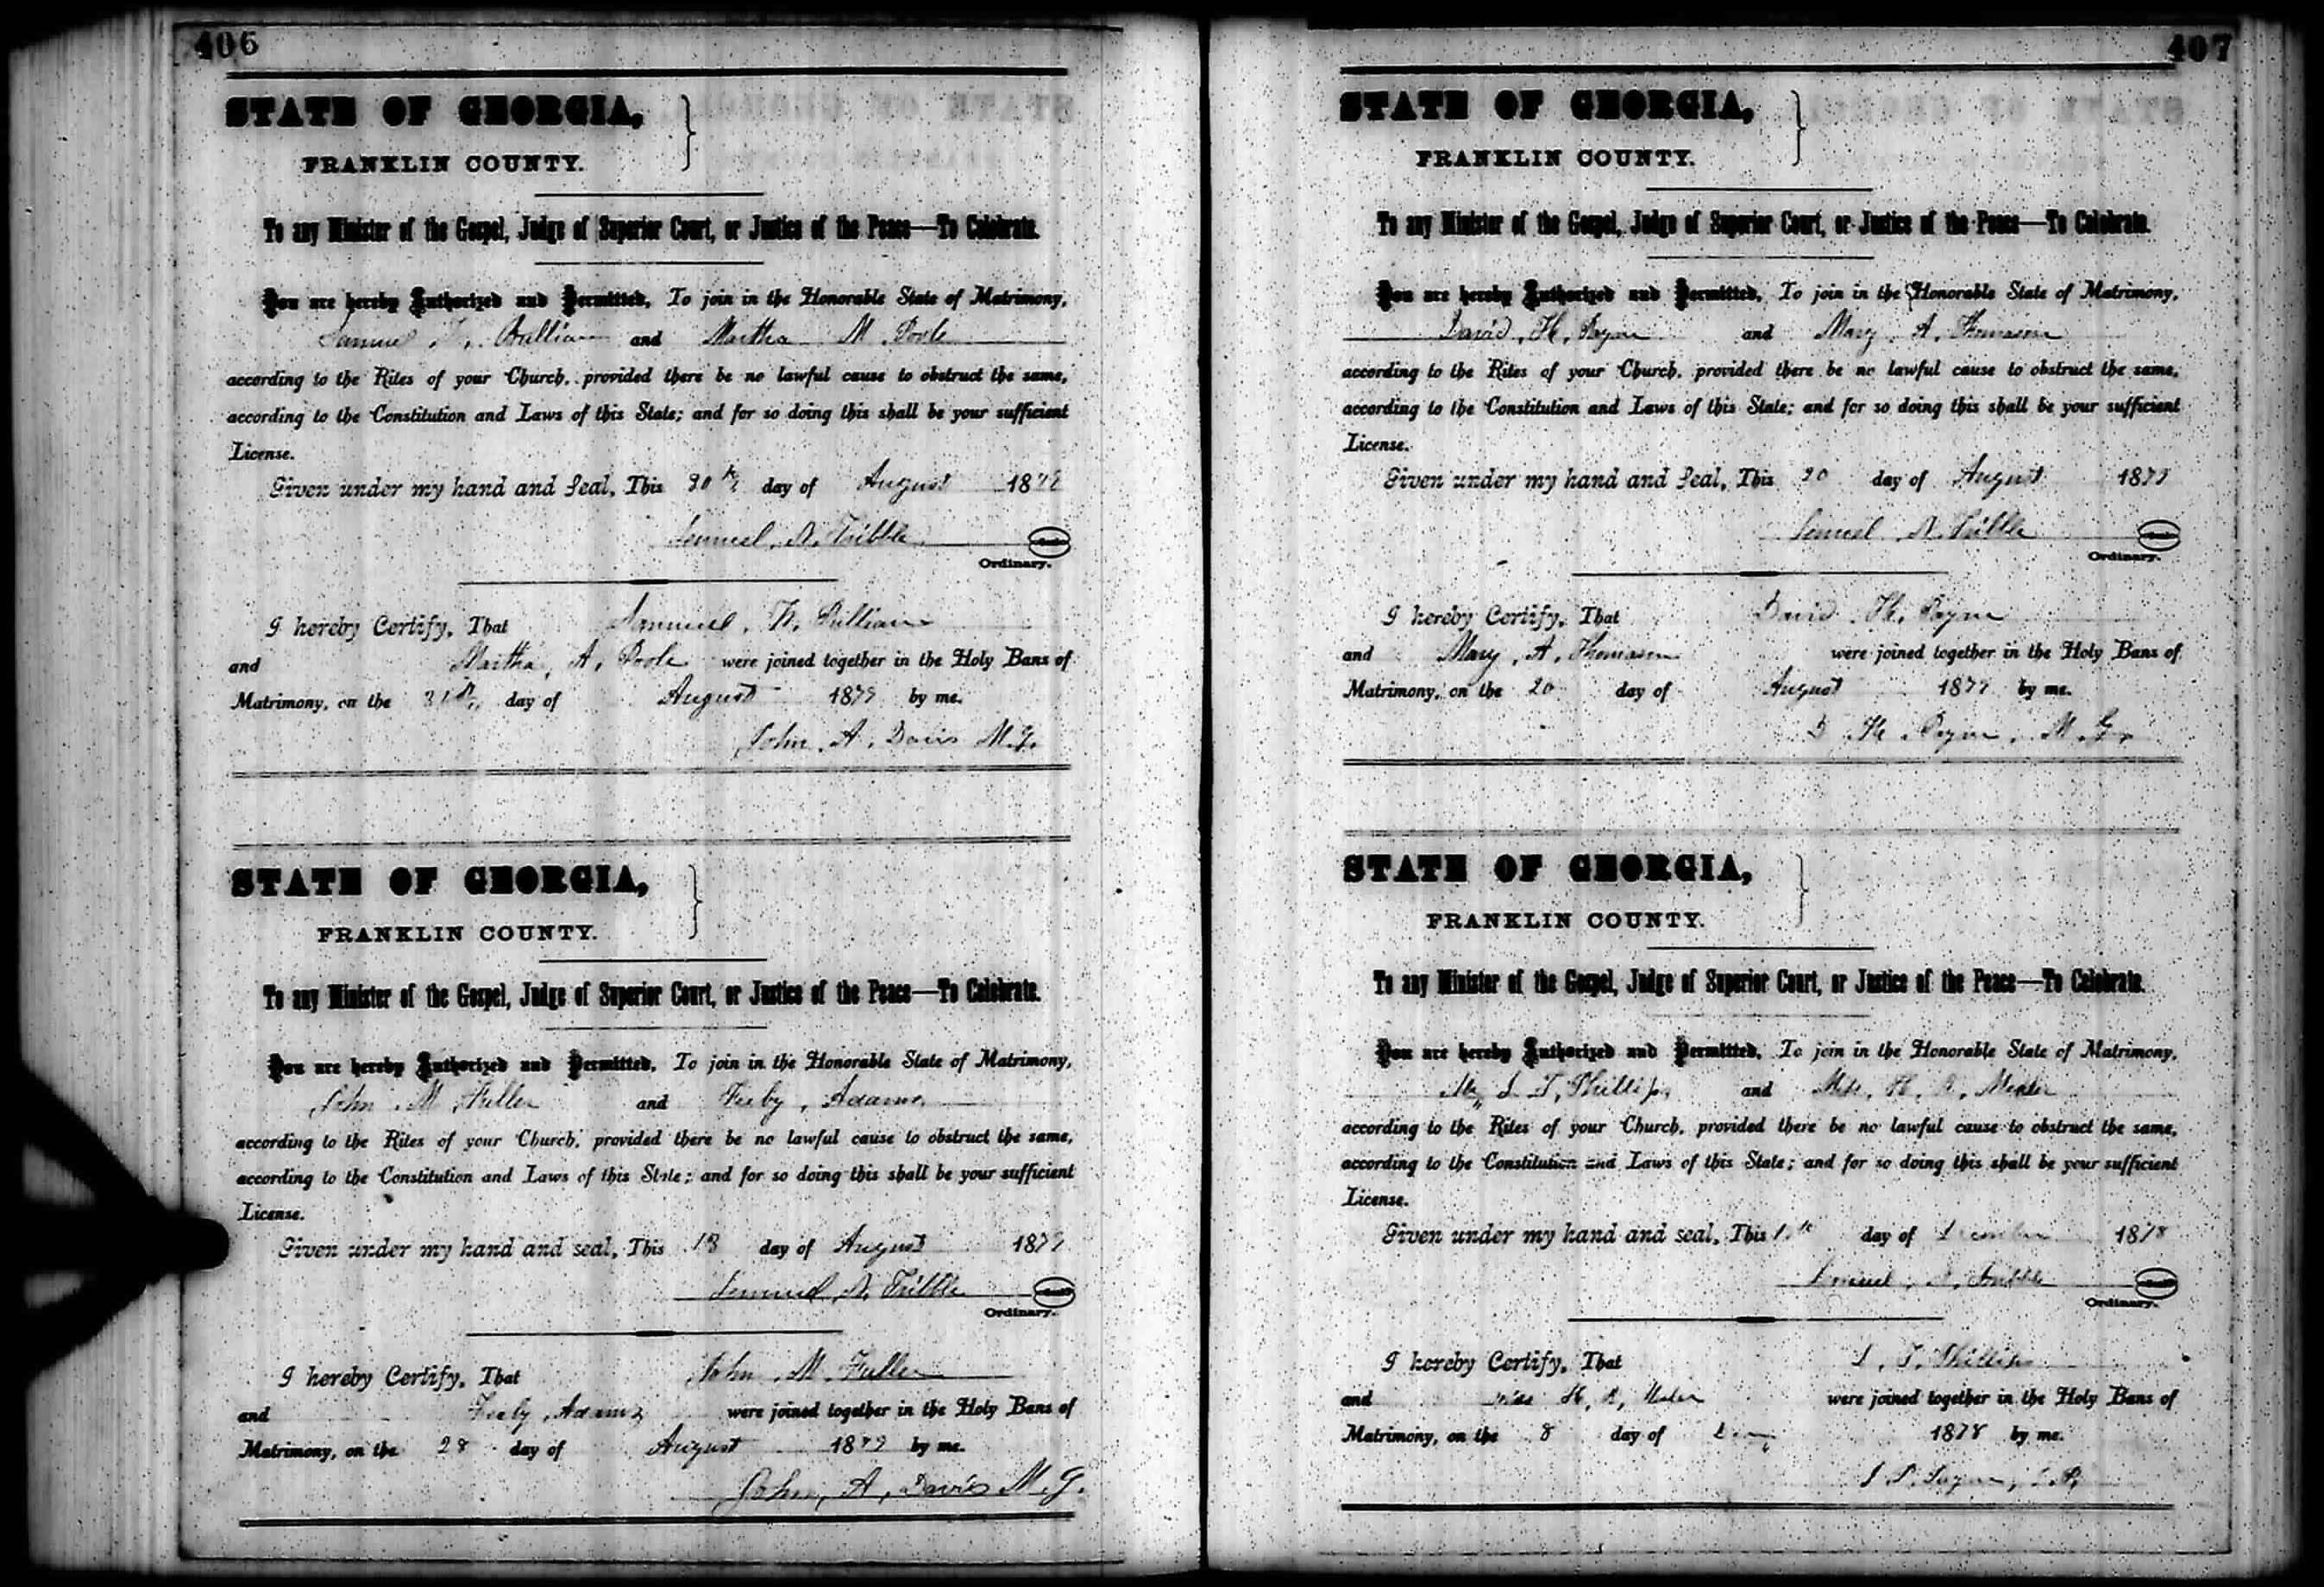 406
STATE OF GEORGIA,
FRANKLIN COUNTY.
To any Minister of the Gospel, Judge of Superior Court, or Justice of the Peace—To Celebrate.
You are hereby Authorized and Permitted, To join in the Honorable State of Matrimony,
Samuel and Martha M. Poole
according to the Rites of your Church, provided there be no lawful cause to obstruct the same,
according to the Constitution and Laws of this State; and for so doing this shall be your sufficient
License.
Given under my hand and Seal, This day of August 187
A. Tribble
Ordinary.
I hereby Certify, That
and Martha, A, Poole were joined together in the Holy Bans of
Matrimony, on the day of August 1879 by me.
John, A, Davis M.G.
STATE OF GEORGIA,
FRANKLIN COUNTY.
To any Minister of the Gospel, Judge of Superior Court, or Justice of the Peace—To Celebrate.
You are hereby Authorized and Permitted, To join in the Honorable State of Matrimony,
John M Fuller and Adams
according to the Rites of your Church, provided there be no lawful cause to obstruct the same,
according to the Constitution and Laws of this State; and for so doing this shall be your sufficient
License.
Given under my hand and seal, This 18 day of August 1879
A. Tribble
Ordinary.
I hereby Certify, That John M. Fuller
and Adams were joined together in the Holy Bans of
Matrimony, on the 28 day of August 1879 by me.
John, A, Davis M.G.
407
STATE OF GEORGIA,
FRANKLIN COUNTY.
To any Minister of the Gospel, Judge of Superior Court, or Justice of the Peace—To Celebrate.
You are hereby Authorized and Permitted, To join in the Honorable State of Matrimony,
David, H, Payne and Mary A. Thomason
according to the Rites of your Church, provided there be no lawful cause to obstruct the same,
according to the Constitution and Laws of this State; and for so doing this shall be your sufficient
License.
Given under my hand and Seal, This 20 day of August 1879
A. Tribble
Ordinary.
I hereby Certify, That David H. Payne
and Mary, A, Thomason were joined together in the Holy Bans of
Matrimony, on the 20 day of August 1879 by me.
H. Payne, M.G.
STATE OF GEORGIA,
FRANKLIN COUNTY.
To any Minister of the Gospel, Judge of Superior Court, or Justice of the Peace—To Celebrate.
You are hereby Authorized and Permitted, To join in the Honorable State of Matrimony,
T, Phillips, and H. R.
according to the Rites of your Church, provided there be no lawful cause to obstruct the same,
according to the Constitution and Laws of this State; and for so doing this shall be your sufficient
License.
Given under my hand and seal, This day of December 1878
Tribble
Ordinary.
I hereby Certify, That T. Phillips
and Miss H, R, were joined together in the Holy Bans of
Matrimony, on the 8 day of 1878 by me.